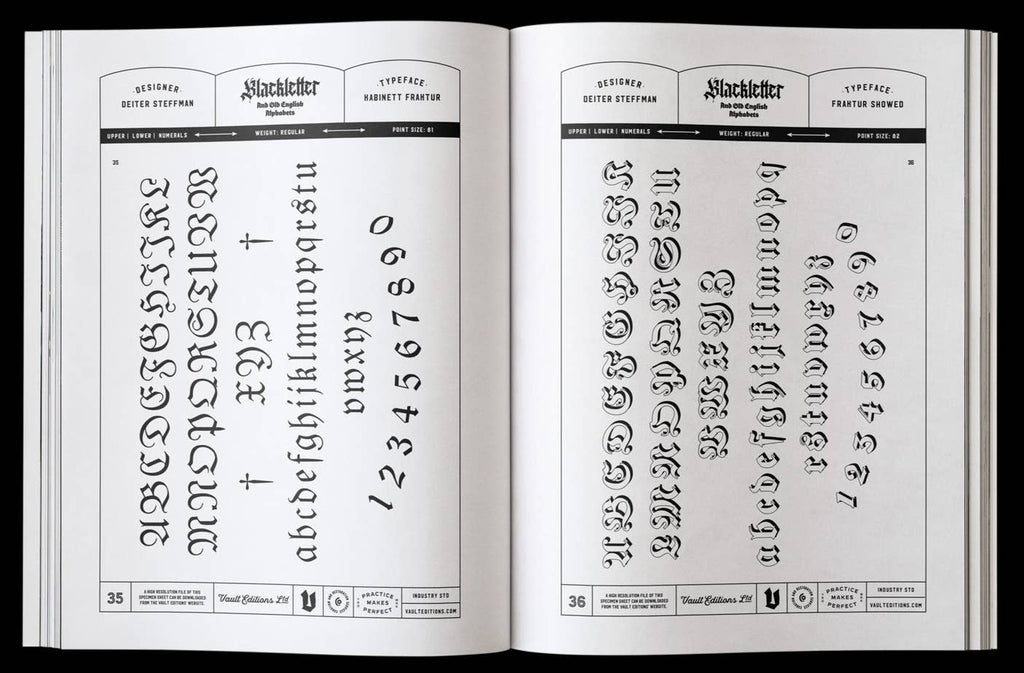 ·DESIGNER·
DEITER STEFFMAN
Blackletter
And Old English
Alphabets
·TYPEFACE·
KABINETT FRAKTUR
UPPER | LOWER | NUMERALS
WEIGHT: REGULAR
POINT SIZE: 81
35
ABCDEFGHIJKL
MNOPQRSTUVW
† XYZ †
abcdefghijklmnopqrstu
vwxyz
1234567890
35
A HIGH RESOLUTION FILE OF THIS
SPECIMEN SHEET CAN BE DOWNLOADED
FROM THE VAULT EDITIONS' WEBSITE.
Vault Editions Ltd
V
PRACTICE
MAKES
PERFECT
INDUSTRY STD
VAULTEDITIONS.COM
·DESIGNER·
DEITER STEFFMAN
Blackletter
And Old English
Alphabets
·TYPEFACE·
FRAKTUR SHOWED
UPPER | LOWER | NUMERALS
WEIGHT: REGULAR
POINT SIZE: 82
36
ABCDEFGHIJK
LMNOPQRSTU
VWXYZ
abcdefghijklmnopq
rstuvwxyz
1234567890
36
A HIGH RESOLUTION FILE OF THIS
SPECIMEN SHEET CAN BE DOWNLOADED
FROM THE VAULT EDITIONS' WEBSITE.
Vault Editions Ltd
V
PRACTICE
MAKES
PERFECT
INDUSTRY STD
VAULTEDITIONS.COM